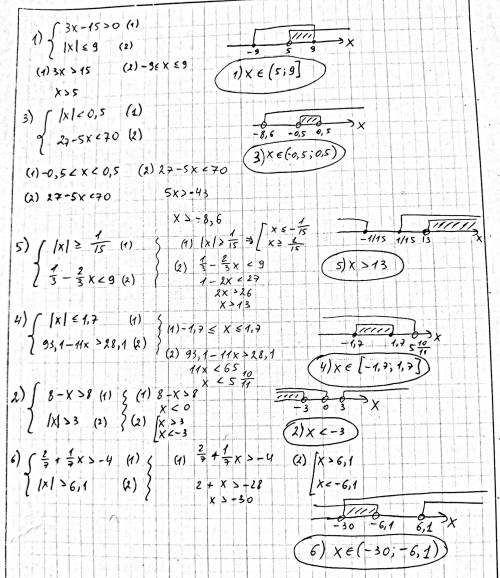 1) { 3x-15>0 (1)
|x| ≤ 9 (2)
(1) 3x>15 (2) -9≤x≤9
x>5
-9 5 9 x
1) x∈(5;9]
3) { |x|<0,5 (1)
27-5x<70 (2)
(1) -0,5<x<0,5 (2) 27-5x<70
(2) 27-5x<70 5x>-43
x>-8,6
-8,6 -0,5 0,5 x
3) x∈(-0,5;0,5)
5) { |x| ≥ 1/15 (1)
1/3 - 2/3x<9 (2)
(1) |x| ≥ 1/15 ⇒ [ x ≤ -1/15
x ≥ 1/15
(2) 1/3 - 2/3x<9
1-2x<27
2x>26
x>13
-1/15 1/15 13 x
5) x>13
4) { |x| ≤ 1,7 (1)
93,1-11x>28,1 (2)
(1) -1,7 ≤ x ≤ 1,7
(2) 93,1-11x>28,1
11x<65
x<5 10/11
-1,7 1,7 5 10/11 x
4) x∈[-1,7;1,7]
2) { 8-x>8 (1)
|x|>3 (2)
(1) 8-x>8
x<0
(2) [ x>3
x<-3
-3 0 3 x
2) x<-3
6) { 2/7+1/7x>-4 (1)
|x|>6,1 (2)
(1) 2/7+1/7x>-4
2+x>-28
x>-30
(2) [ x>6,1
x<-6,1
-30 -6,1 6,1 x
6) x∈(-30;-6,1)